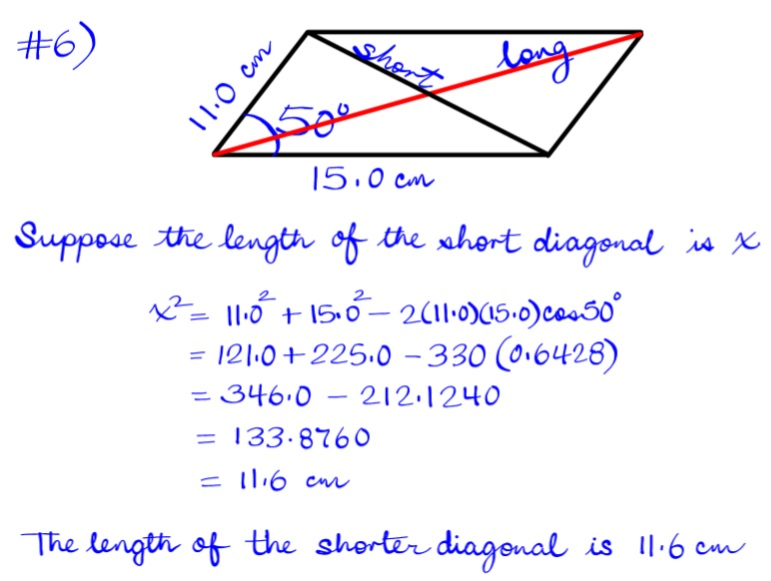 #6)
11.0 cm
short
long
50°
15.0 cm
Suppose the length of the short diagonal is x
x² = 11.0² + 15.0² − 2(11.0)(15.0)cos50°
= 121.0 + 225.0 − 330 (0.6428)
= 346.0 − 212.1240
= 133.8760
= 11.6 cm
The length of the shorter diagonal is 11.6 cm